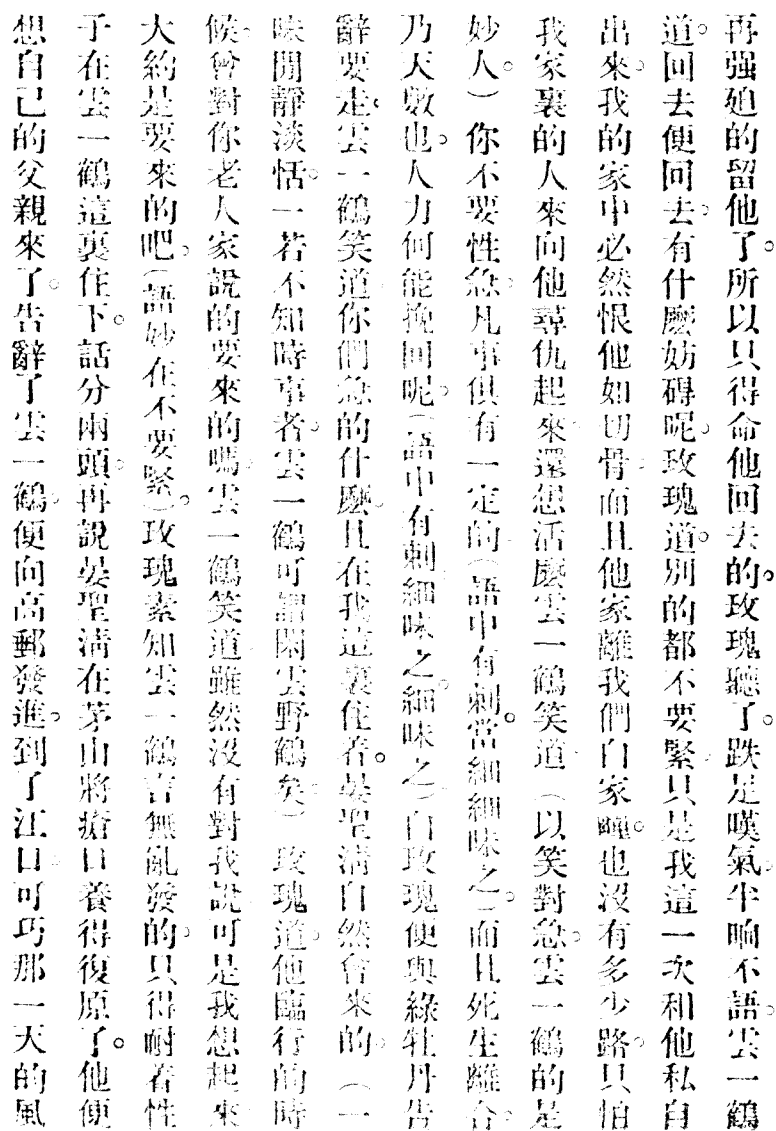 再强廹的留他了。所以只得命他回去的。玫瑰聽了。跌足嘆氣。半晌不語。雲一鶴
道。回去便回去。有什麽妨碍呢。玫瑰道。別的都不要緊。只是我這一次和他私自
出來。我的家中必然恨他如切骨。而且他家離我們白家疃。也沒有多少路。只怕
我家裏的人來向他尋仇起來。還想活麽。雲一鶴笑道。（以笑對急。雲一鶴的是
妙人。）你不要性急。凡事俱有一定的。（語中有刺。當細細味之。）而且死生離合。
乃天數也。人力何能挽回呢。（語中有刺。細味之。細味之。）白玫瑰便與綠牡丹告
辭要走。雲一鶴笑道。你們急的什麽。且在我這裏住着。晏聖淸自然會來的。（一
味閒靜淡恬。一若不知時事者。雲一鶴可謂閑雲野鶴矣。）玫瑰道。他臨行的時
候。曾對你老人家說的要來的嗎。雲一鶴笑道。雖然沒有對我說。可是我想起來
大約是要來的吧。（語妙在不要緊。）玫瑰素知雲一鶴言無亂發的。只得耐着性
子在雲一鶴這裏住下。話分兩頭。再說晏聖淸在茅山將瘡口養得復原了。他便
想自己的父親來了。告辭了雲一鶴。便向高郵發進。到了江口。可巧那一天的風